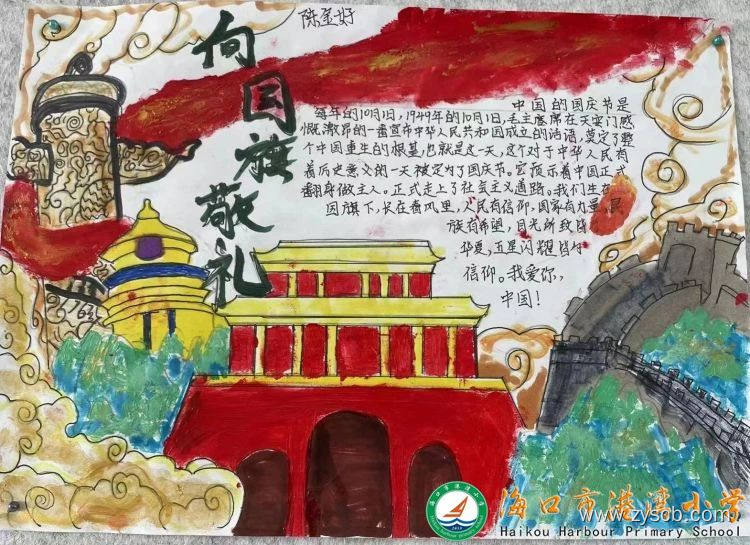 陈金好
向国旗敬礼
中国的国庆节是
每年的10月1日,1949年的10月1日,毛主席在天安门感
慨激昂的一番宣布中华人民共和国成立的话语,奠定了整
个中国重生的根基,也就是这一天,这个对于中华人民有
着历史意义的一天被定为了国庆节。它预示着中国正式
翻身做主人。正式走上了社会主义道路。我们生在
国旗下,长在春风里,人民有信仰,国家有力量,民
族有希望,目光所致皆
华夏,五星闪耀皆为
信仰。我爱你,
中国!
海口市港湾小学
Haikou Harbour Primary School
www.zyscb.com